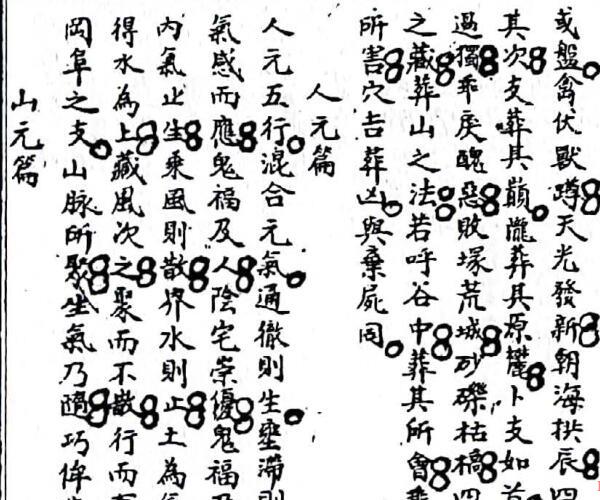 或盤禽伏獸蹲天光發新朝海拱辰四
其次支葬其巔隴葬其原麓卜支如首
過獨乖戾醜惡敗塚荒城砂礫枯槁四
之藏葬山之法若呼谷中葬其所會乘
所害穴吉葬凶與棄屍同
人元篇
人元五行混合元氣通徹則生壅滯則
氣感而應鬼福及人陰宅崇優鬼福及
內氣止生乘風則散界水則止土為氣
得水為上藏風次之聚而不散行而有
岡阜之支山脉所聚生氣乃隨巧侔造
山元篇